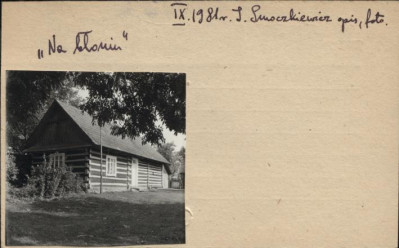 IX.1981r. I. Smoczkiewicz opis, foto.
„Na błoniu"